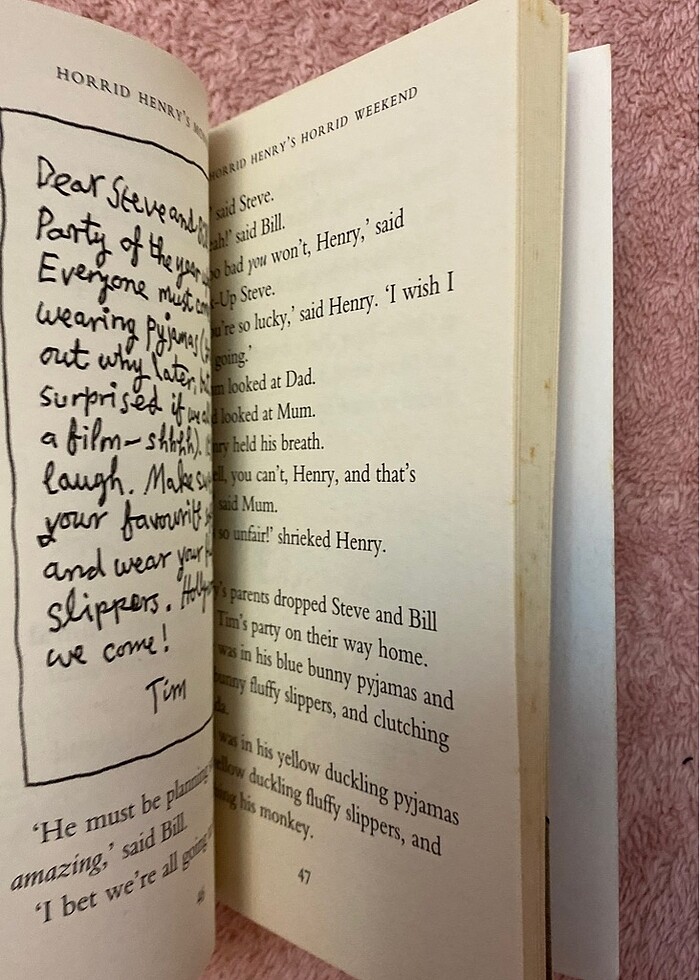 HORRID HENRY'S
Dear Steve and
Party of the year
Everyone must
wearing pyjamas
out why later,
surprised if we
a film-shhhh).
laugh. Make
your favourite
and wear your
slippers.
we come!
Tim
'He must be planning
amazing,' said Bill.
'I bet we're all going
46
HORRID HENRY'S HORRID WEEKEND
' said Steve.
said Bill.
bad you won't, Henry,' said
Up Steve.
so lucky,' said Henry. 'I wish I
going.'
looked at Dad.
looked at Mum.
held his breath.
you can't, Henry, and that's
said Mum.
so unfair!' shrieked Henry.
parents dropped Steve and Bill
Tim's party on their way home.
was in his blue bunny pyjamas and
bunny fluffy slippers, and clutching
was in his yellow duckling pyjamas
yellow duckling fluffy slippers, and
his monkey.
47